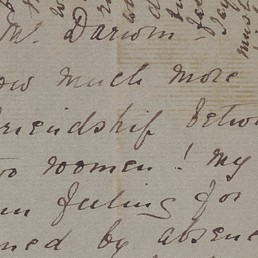 Mr. Darwin -
ow much more
riendship betw
wo women! My
n feeling for
ned by absenc